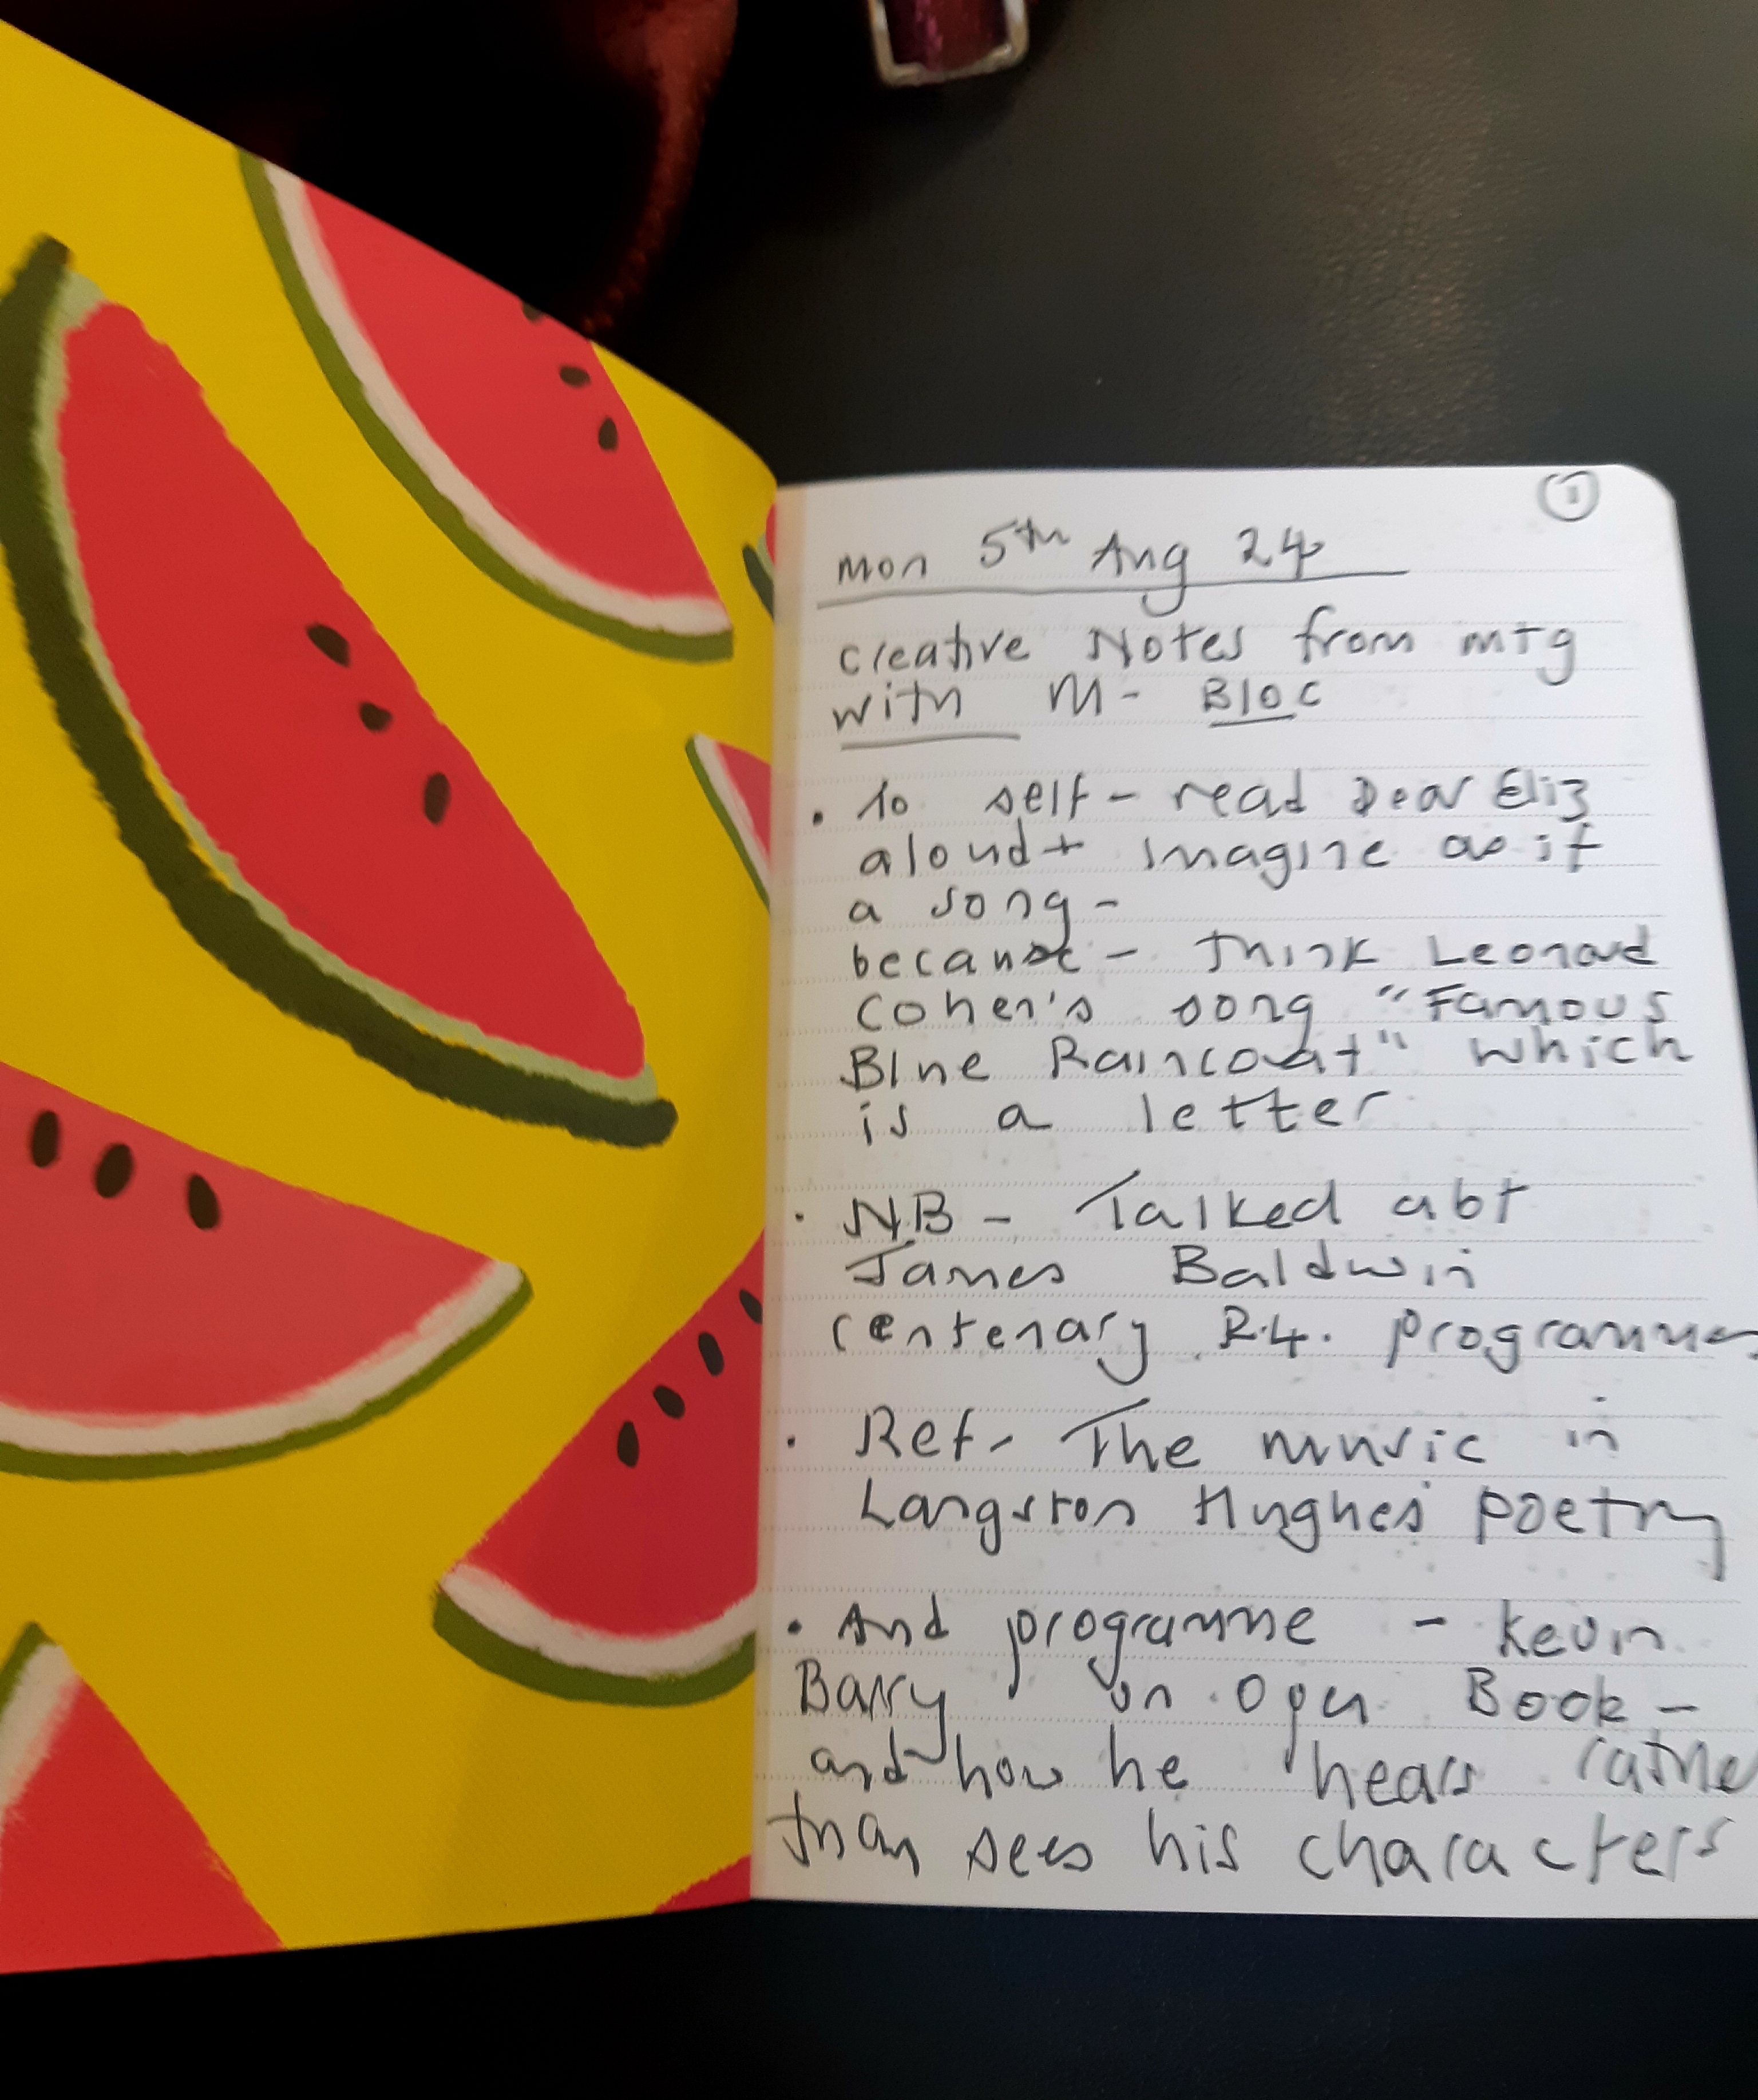 1
Mon 5th Aug 24
Creative Notes from mtg
with M - Bloc
• To self - read Dear Eliz
aloud + imagine as if
a song -
because - think Leonard
Cohen's song "Famous
Blue Raincoat" which
is a letter
• NB - Talked abt
James Baldwin
centenary R.4. programmes
• Ref - The music in
Langston Hughes' poetry
• And programme - Kevin
Barry on Open Book -
and how he hears rather
than sees his characters